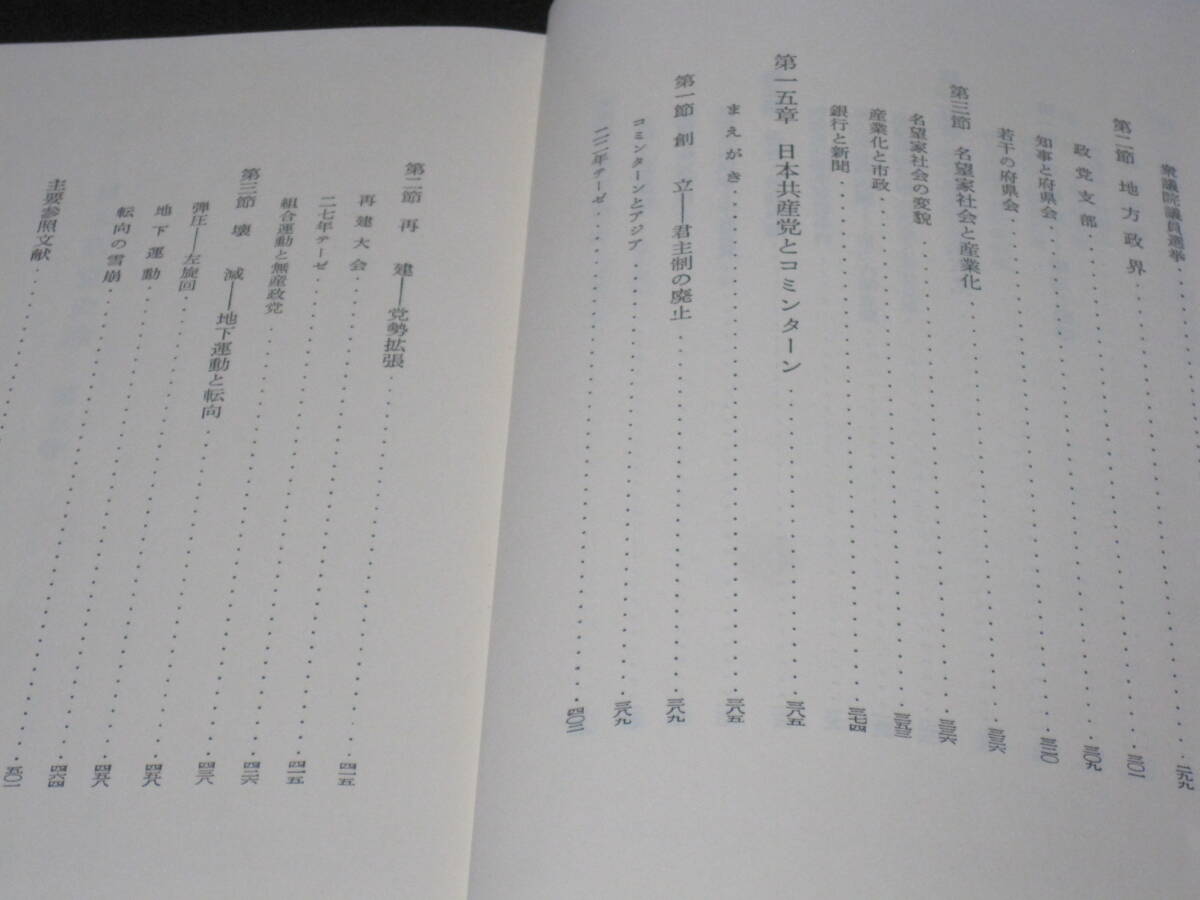 衆議院議員選挙
第二節 地方政界 二九九
政党支部 三〇一
知事と府県会 三〇九
若干の府県会 三二〇
第三節 名望家社会と産業化 三三六
名望家社会の変貌 三三六
産業化と市政 三五三
銀行と新聞 三七四
第一五章 日本共産党とコミンターン 三八五
まえがき 三八五
第一節 創立――君主制の廃止 三八九
コミンターンとアジア 三八九
二二年テーゼ 四〇二
第二節 再建――党勢拡張 四一五
再建大会 四一五
二七年テーゼ 四二六
組合運動と無産政党 四三八
第三節 壊滅――地下運動と転向 四五八
弾圧――左旋回 四五八
地下運動 四六四
転向の雪崩 五〇一
主要参照文献